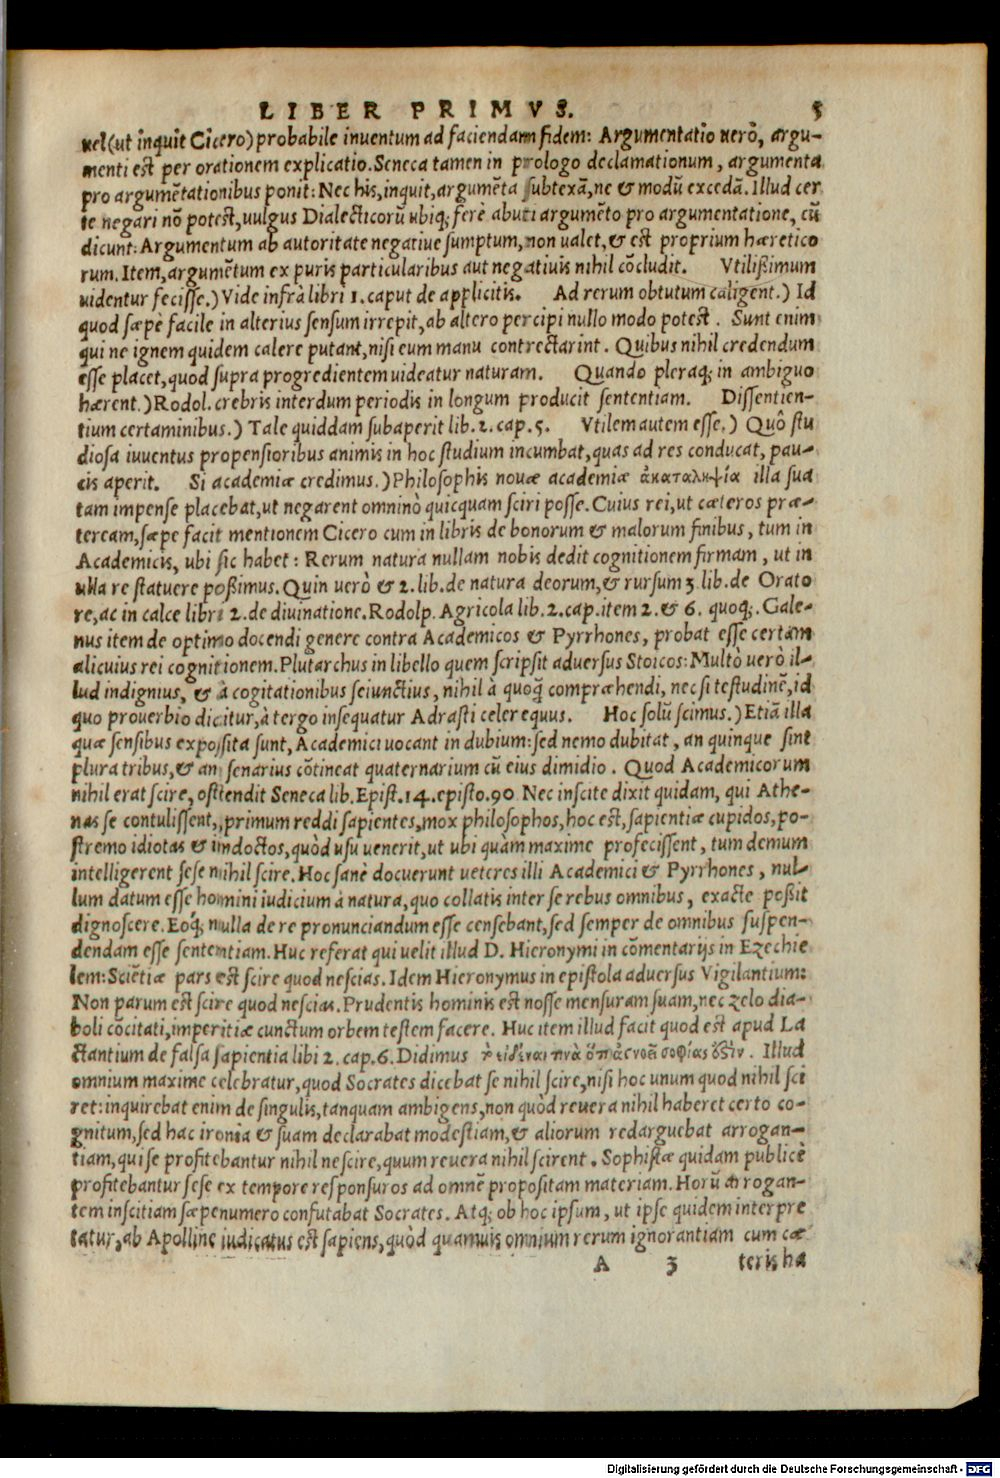 LIBER PRIMVS. 5
uel(ut inquit Cicero)probabile inuentum ad faciendam fidem: Argumentatio uerò, argu-
menti est per orationem explicatio. Seneca tamen in prologo declamationum, argumenta
pro argumẽtationibus ponit: Nec his, inquit, argumẽta subtexã, ne & modũ excedã. Illud cer
te negari nõ potest, uulgus Dialecticorũ ubiq; ferè abuti argumẽto pro argumentatione, cũ
dicunt: Argumentum ab autoritate negatiue sumptum, non ualet, & est proprium hæretico
rum. Item, argumẽtum ex puris particularibus aut negatiuis nihil cõcludit. Vtilißimum
uidentur fecisse.) Vide infrà libri 1. caput de applicitis. Ad rerum obtutum caligent.) Id
quod sæpè facile in alterius sensum irrepit, ab altero percipi nullo modo potest. Sunt enim
qui ne ignem quidem calere putant, nisi eum manu contrectarint. Quibus nihil credendum
esse placet, quod supra progredientem uideatur naturam. Quando pleraq; in ambiguo
hærent.) Rodol. crebris interdum periodis in longum producit sententiam. Dissentien-
tium certaminibus.) Tale quiddam subaperit lib. 2. cap. 5. Vtilem autem esse.) Quô stu
diosa iuuentus propensioribus animis in hoc studium incumbat, quas ad res conducat, pau-
cis aperit. Si academiæ credimus.) Philosophis nouæ academiæ ἀκαταληψία illa sua
tam impense placebat, ut negarent omninò quicquam sciri posse. Cuius rei, ut cæteros præ-
teream, sæpe facit mentionem Cicero cum in libris de bonorum & malorum finibus, tum in
Academicis, ubi sic habet: Rerum natura nullam nobis dedit cognitionem firmam, ut in
ulla re statuere poßimus. Quin uerò & 2. lib. de natura deorum, & rursum 3 lib. de Orato
re, ac in calce libri 2. de diuinatione. Rodolp. Agricola lib. 2. cap. item 2. & 6. quoq;. Gale-
nus item de optimo docendi genere contra Academicos & Pyrrhones, probat esse certam
alicuius rei cognitionem. Plutarchus in libello quem scripsit aduersus Stoicos: Multò uerò il-
lud indignius, & à cogitationibus seiunctius, nihil à quoq̃ compræhendi, nec si testudinẽ, id
quo prouerbio dicitur, à tergo insequatur Adrasti celer equus. Hoc solũ scimus.) Etiã illa
quæ sensibus exposita sunt, Academici uocant in dubium: sed nemo dubitat, an quinque sint
plura tribus, & an senarius cõtineat quaternarium cũ eius dimidio. Quod Academicorum
nihil erat scire, ostendit Seneca lib. Epist. 14. episto. 90 Nec inscite dixit quidam, qui Athe-
nas se contulissent,, primum reddi sapientes, mox philosophos, hoc est, sapientiæ cupidos, po-
stremo idiotas & indoctos, quòd usu uenerit, ut ubi quàm maxime profecissent, tum demum
intelligerent sese nihil scire. Hoc sanè docuerunt ueteres illi Academici & Pyrrhones, nul-
lum datum esse homini iudicium à natura, quo collatis inter se rebus omnibus, exacte poßit
dignoscere. Eoq́; nulla de re pronunciandum esse censebant, sed semper de omnibus suspen-
dendam esse sententiam. Huc referat qui uelit illud D. Hieronymi in cõmentarijs in Ezechie
lem: Sciẽtiæ pars est scire quod nescias. Idem Hieronymus in epistola aduersus Vigilantium:
Non parum est scire quod nescias. Prudentis hominis est nosse mensuram suam, nec zelo dia-
boli cõcitati, imperitiæ cunctum orbem testem facere. Huc item illud facit quod est apud La
ctantium de falsa sapientia libi 2. cap. 6. Didimus Illud
omnium maxime celebratur, quod Socrates dicebat se nihil scire, nisi hoc unum quod nihil sci
ret: inquirebat enim de singulis, tanquam ambigens, non quòd reuera nihil haberet certo co-
gnitum, sed hac ironia & suam declarabat modestiam, & aliorum redarguebat arrogan-
tiam, qui se profitebantur nihil nescire, quum reuera nihil scirent. Sophistæ quidam publicè
profitebantur sese ex tempore responsuros ad omnẽ propositam materiam. Horũ arrogan-
tem inscitiam sæpenumero confutabat Socrates. Atq; ob hoc ipsum, ut ipse quidem interpre
tatur, ab Apolline iudicatus est sapiens, quòd quamuis omnium rerum ignorantiam cum cæ
A 3 teris ha
Digitalisierung gefördert durch die Deutsche Forschungsgemeinschaft - DFG